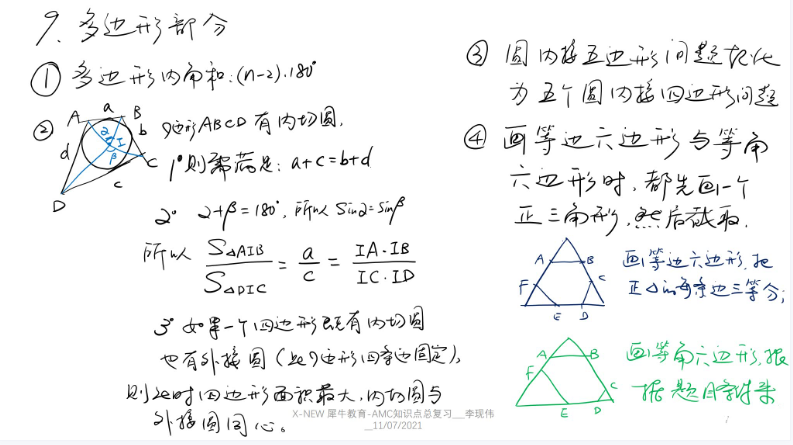 9、多边形部分
① 多边形内角和:(n-2)·180°
②
A a B
b
d
C
c
D
α
I
β
四边形ABCD有内切圆,
1° 则需满足: a+c=b+d
2° α+β=180°, 所以 Sinα=Sinβ
所以 S△AIB/S△DIC = a/c = IA·IB/IC·ID
3° 如果一个四边形既有内切圆
也有外接圆(此四边形四条边固定),
则此时四边形面积最大,内切圆与
外接圆同心。
③ 圆内接五边形问题转化
为五个圆内接四边形问题
④ 画等边六边形与等角
六边形时,都先画一个
正三角形,然后截取.
A B
C
F
E D
画等边六边形,把
正△的每条边三等分;
A B
F
C
E D
画等角六边形,根
据题目条件来
X-NEW 犀牛教育-AMC知识点总复习__李现伟
__11/07/2021